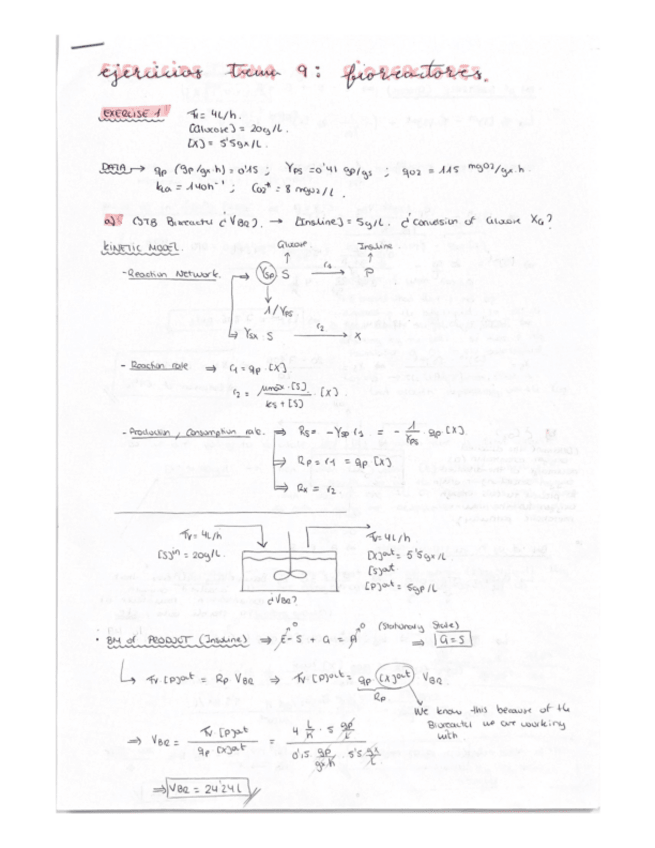 ejercicios tema 9: bioreactores.
EXERCISE 1 Fv = 4L/h.
[Glucose] = 20g/L.
[X] = 5'5gx/L.
DATA → qp (gp/gx.h) = 0'15 ; YPS = 0'41 gp/gs ; qO2 = 115 mgO2/gx.h
kLa = 140h⁻¹ ; CO2* = 8 mgO2/L.
a) Bioreactor ¿VBR?. → [Insuline] = 5g/L. ¿Conversion of Glucose XG?
KINETIC MODEL.
Glucose Insuline
- Reaction Network. ⇒ YSP S r1→ P
1/YPS
YSX S r2→ X
- Reaction rate ⇒ r1 = qp · [X]
r2 = μmax·[S] / kS + [S] · [X]
- Production, Consumption rate. ⇒ RS = -YSP r1 = - 1/YPS · qp [X]
⇒ RP = r1 = qp [X]
⇒ RX = r2
Fv = 4L/h Fv = 4L/h
[S]in = 20g/L. [X]out = 5'5gx/L
[S]out
[P]out = 5gp/L
¿VBR?
· BM of PRODUCT (Insuline) ⇒ E - S + G = A (Stationary State) ⇒ G = S
Fv [P]out = RP VBR ⇒ Fv [P]out = qp [X]out VBR
RP
We know this because of the
Bioreactor we are working
with.
⇒ VBR = Fv [P]out / qp [X]out = 4 L/h · 5 gp/L / 0'15 gp/gx.h · 5'5 gx/L
⇒ VBR = 24'24L